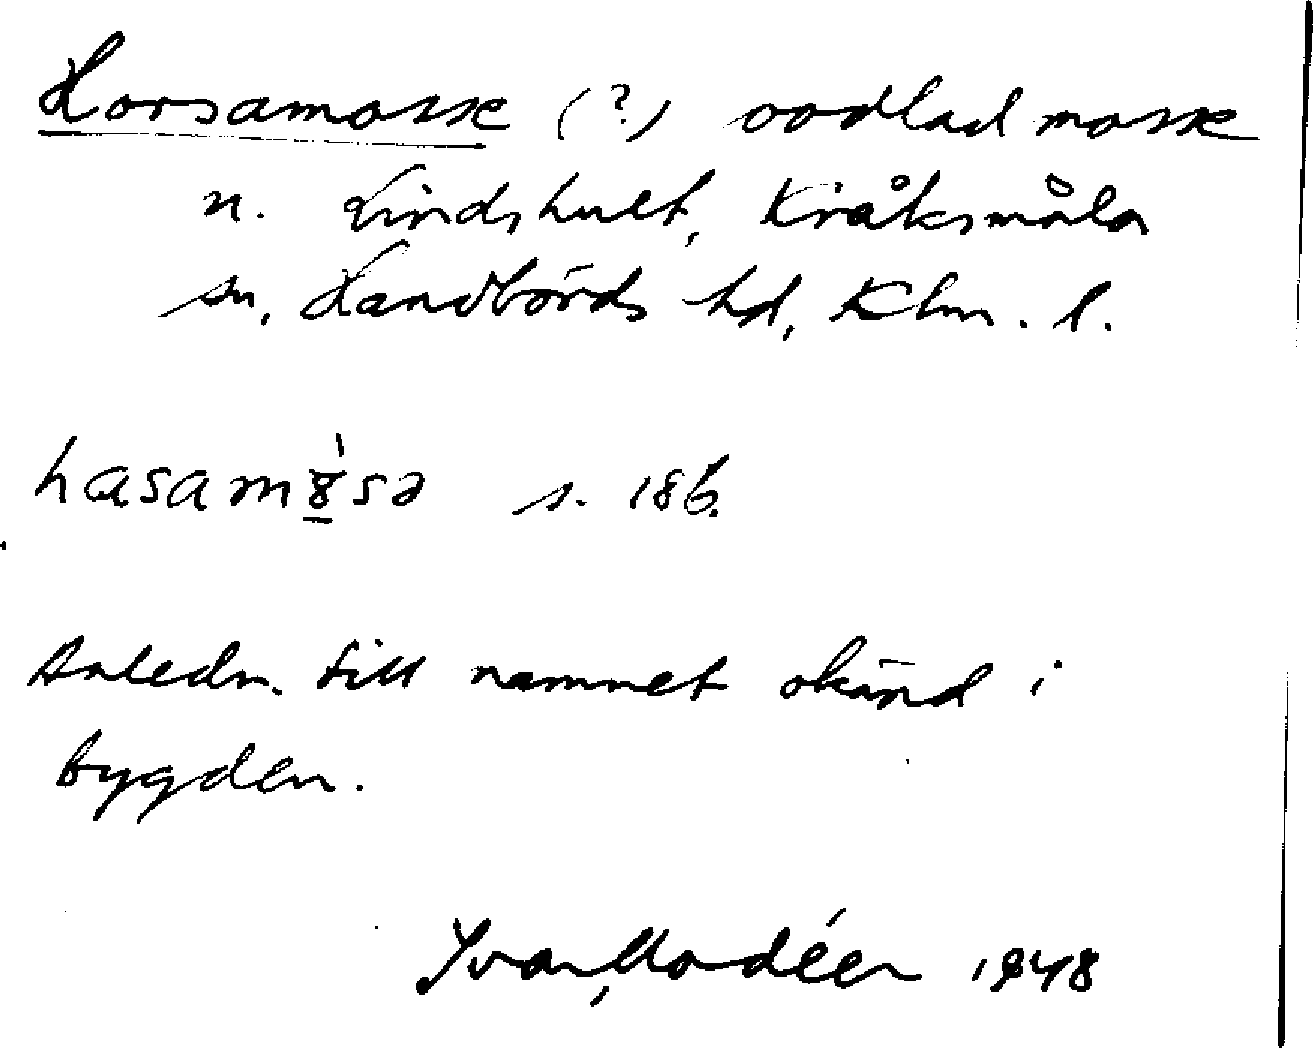 Horsamosse (?) oodlad mosse
n. Lindshult, Kråksmåla
sn, Handbörds hd, Klm. l.
hasam8̲̀sə s. 186.
Anledn. till namnet okänd i
bygden.
Ivar Modéer 1948